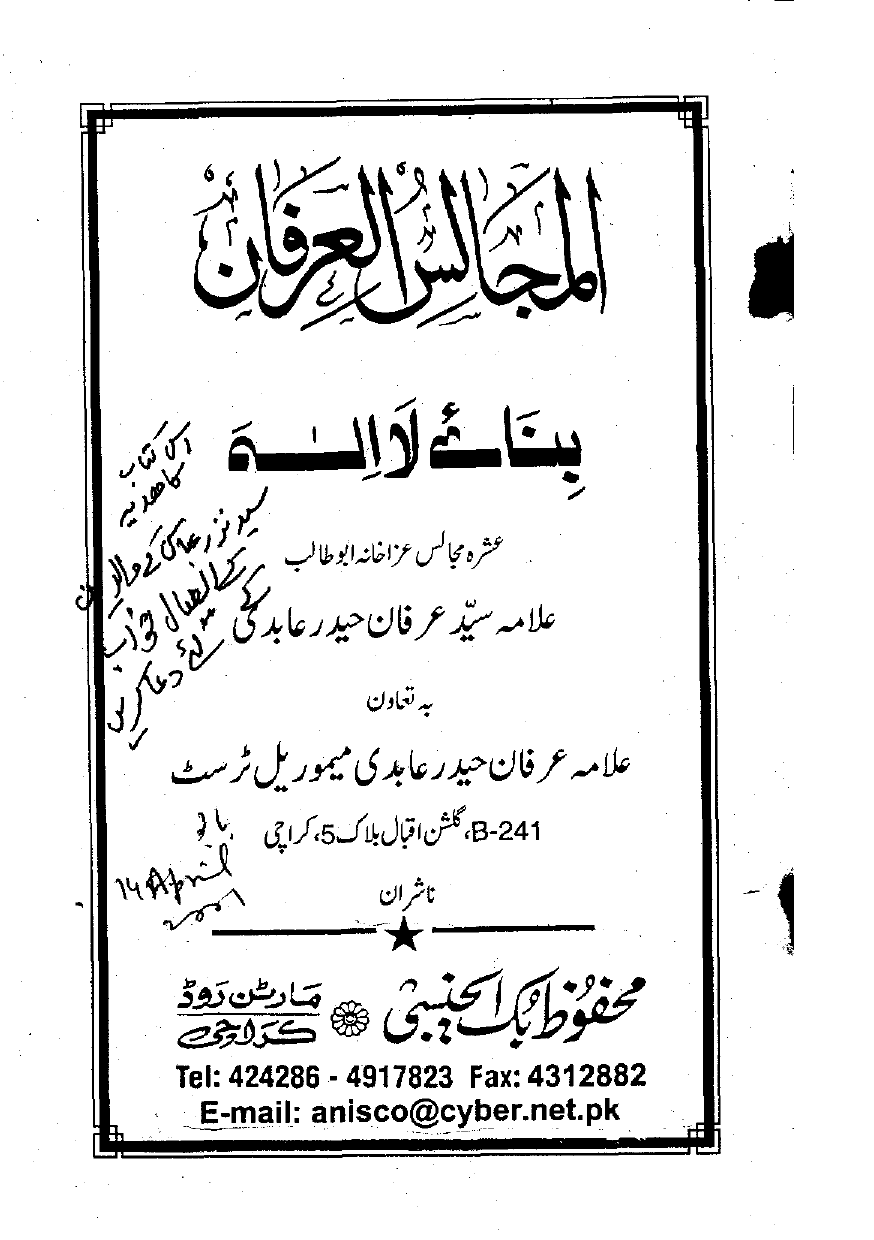 المجالس العرفان
بنائے لا الٰہ
اس کتاب
کا ھدیہ
سید نذر عباس کے والدین
کے ایصال ثواب
کے لئے دعا کریں
عشرہ مجالس عزاخانہ ابو طالب
علامہ سیّد عرفان حیدر عابدی
بہ تعاون
علامہ عرفان حیدر عابدی میموریل ٹرسٹ
B-241، گلشن اقبال بلاک 5، کراچی
14 April
2001
ناشران
محفوظ بک ایجنسی
مارٹن روڈ
کراچی
Tel: 424286 - 4917823 Fax: 4312882
E-mail: anisco@cyber.net.pk